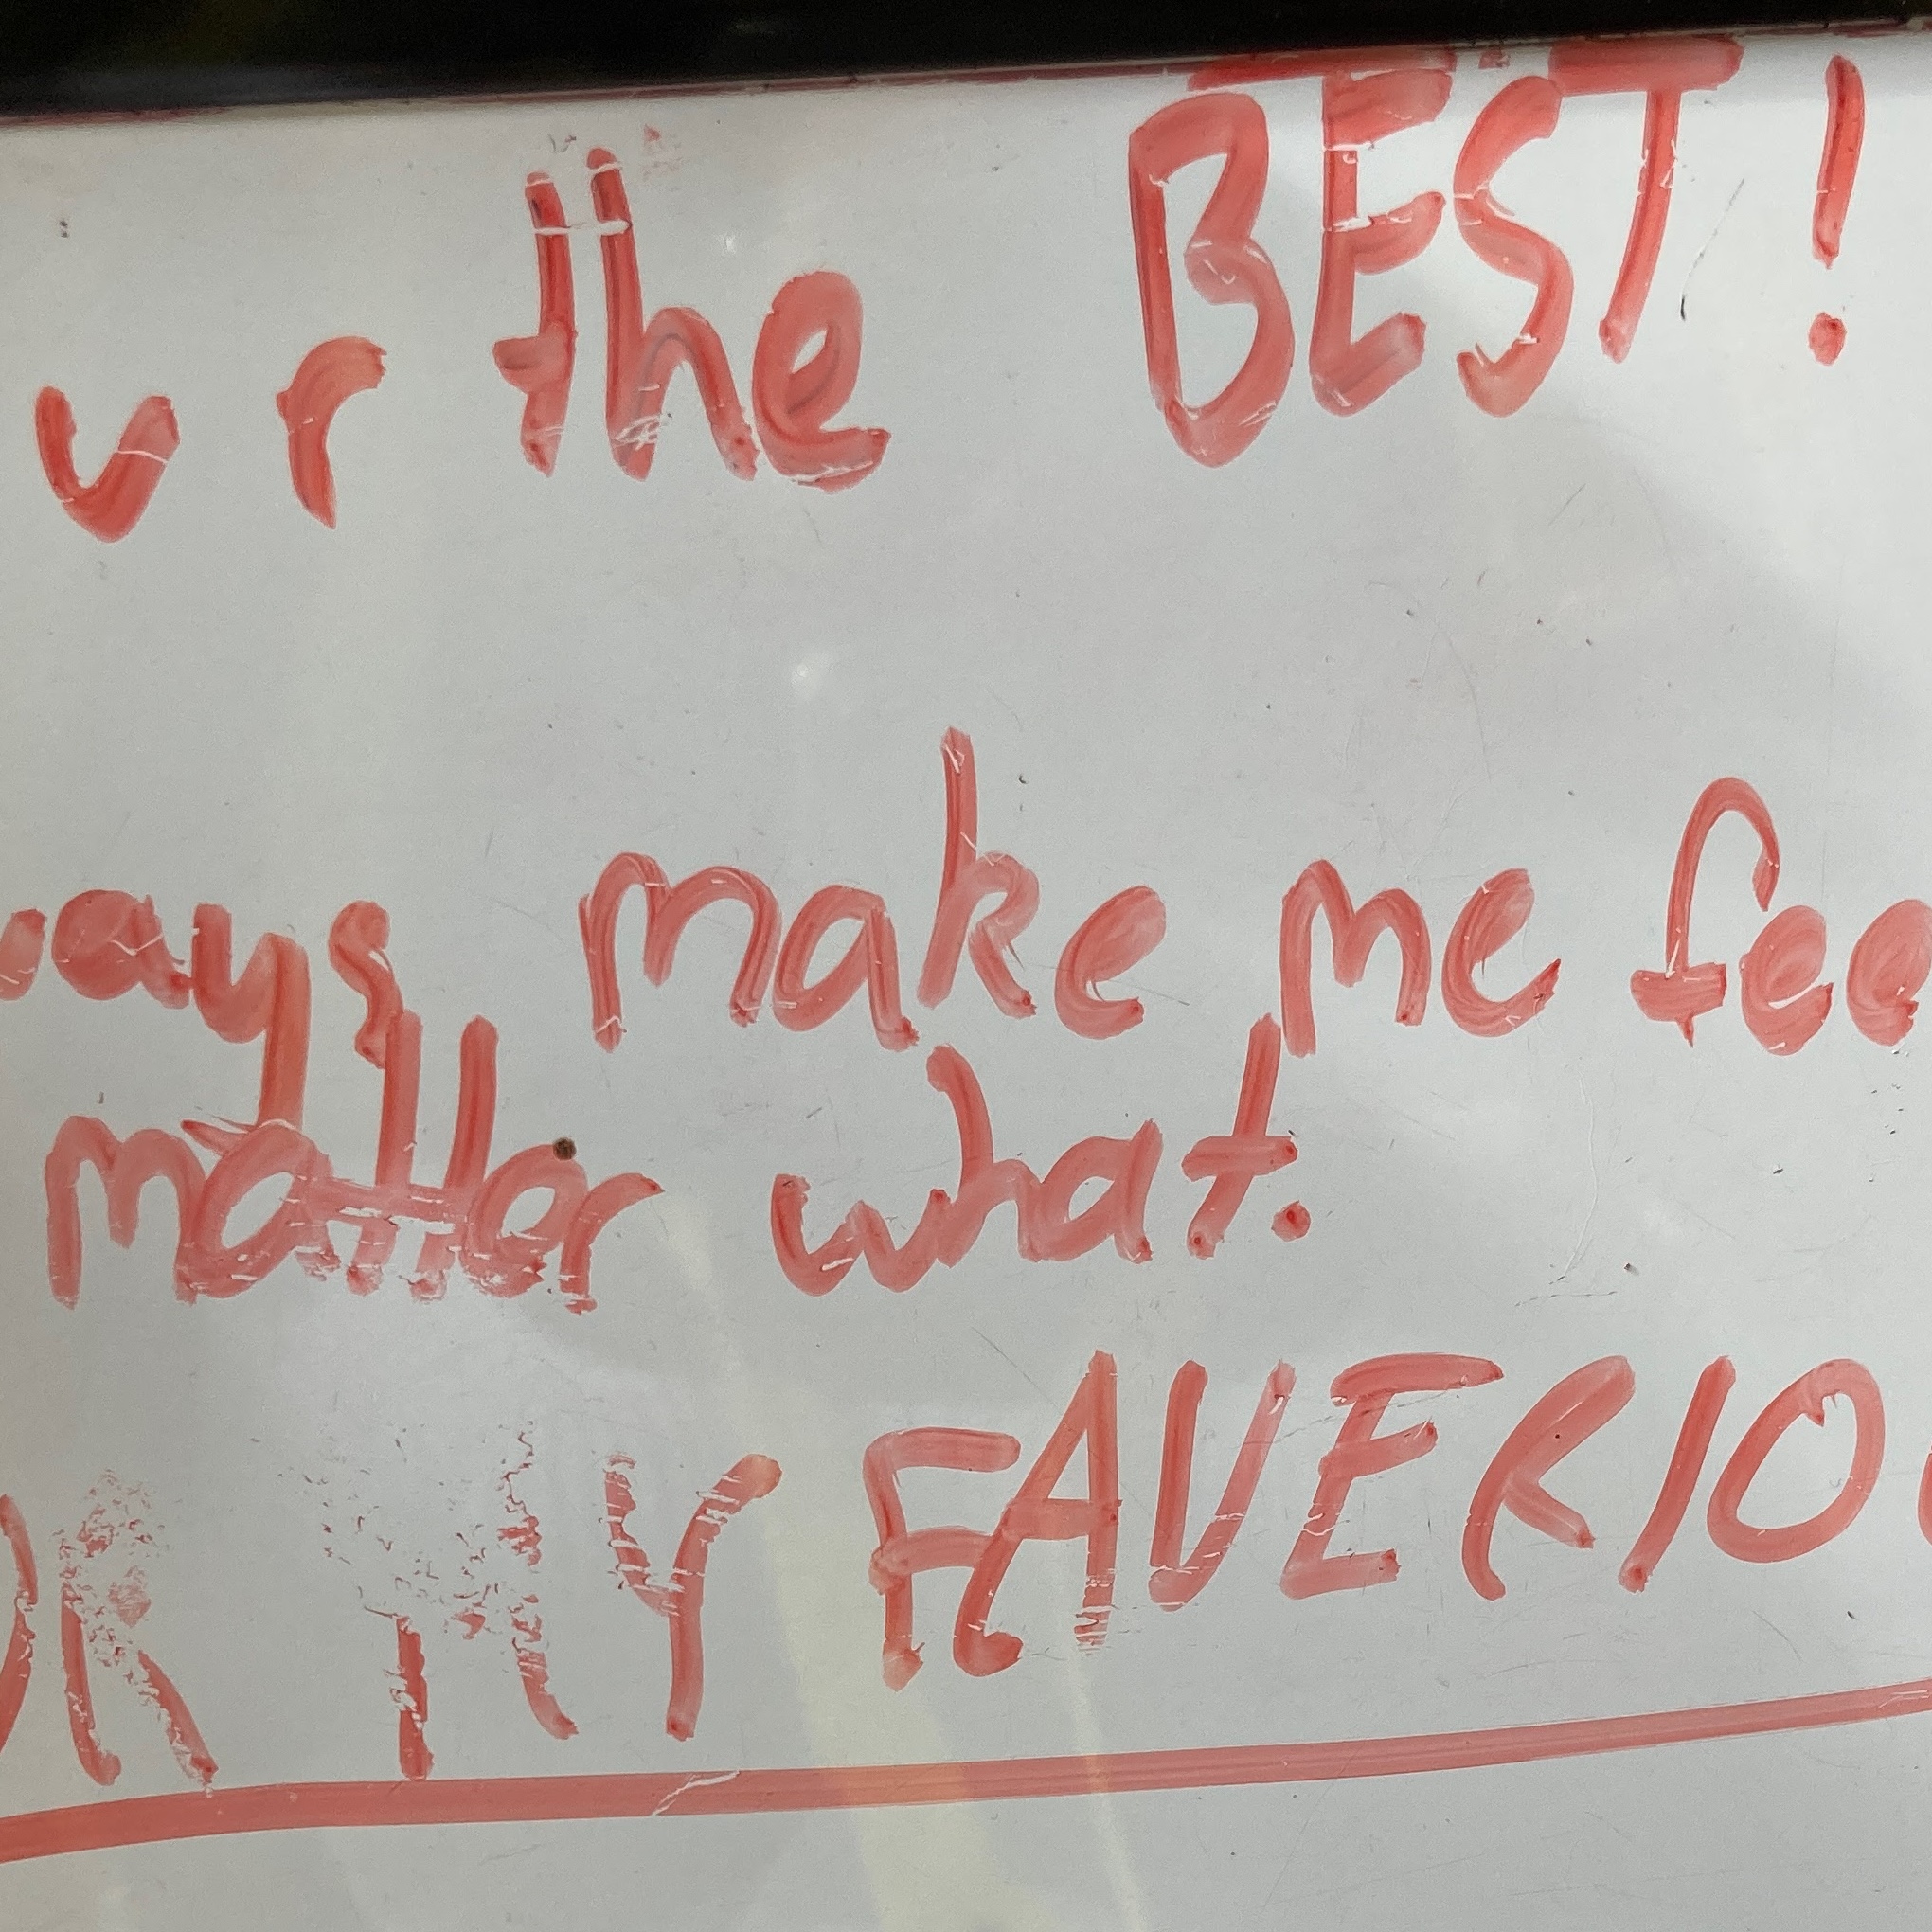 ur the BEST!
ways make me fee
matter what.
R MY FAVERIO